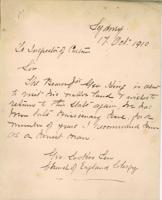 Sydney
17 Oct 1910
To Inspector of Customs
Sir
The Bearer Geo Hing is about
to visit his native land & wishes to
return to this State again. He has
from late Missionary here, for a
number of years. I recommend him
as an honest man.
Church of England Clergy